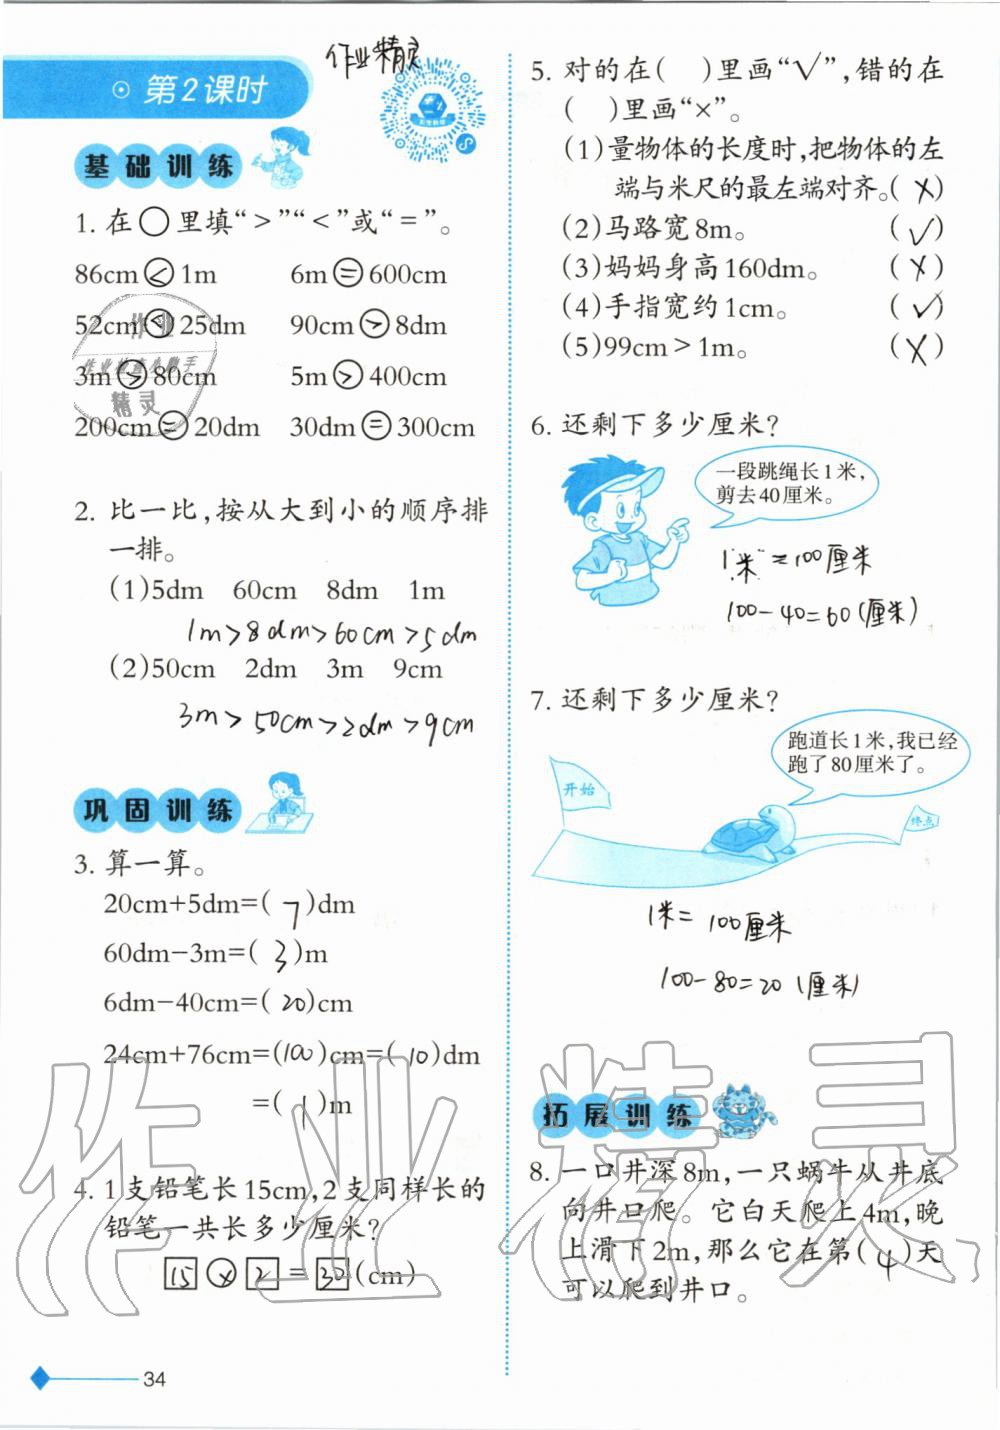 作业精灵
第2课时
基础训练
1. 在○里填“>”“<”或“=”。
86cm<1m 6m=600cm
52cm<25dm 90cm>8dm
3m>80cm 5m>400cm
200cm=20dm 30dm=300cm
2. 比一比,按从大到小的顺序排
一排。
(1)5dm 60cm 8dm 1m
1m>8dm>60cm>5dm
(2)50cm 2dm 3m 9cm
3m>50cm>2dm>9cm
巩固训练
3. 算一算。
20cm+5dm=(7)dm
60dm-3m=(3)m
6dm-40cm=(20)cm
24cm+76cm=(100)cm=(10)dm
=(1)m
4. 1支铅笔长15cm,2支同样长的
铅笔一共长多少厘米?
15×2=30(cm)
34
5. 对的在( )里画“√”,错的在
( )里画“×”。
(1)量物体的长度时,把物体的左
端与米尺的最左端对齐。(×)
(2)马路宽8m。 (√)
(3)妈妈身高160dm。 (×)
(4)手指宽约1cm。 (√)
(5)99cm>1m。 (×)
6. 还剩下多少厘米?
一段跳绳长1米,
剪去40厘米。
1米=100厘米
100-40=60(厘米)
7. 还剩下多少厘米?
跑道长1米,我已经
跑了80厘米了。
开始
终点
1米=100厘米
100-80=20(厘米)
拓展训练
8. 一口井深8m,一只蜗牛从井底
向井口爬。它白天爬上4m,晚
上滑下2m,那么它在第(4)天
可以爬到井口。
作业
作业检查小助手
精灵
作业精灵